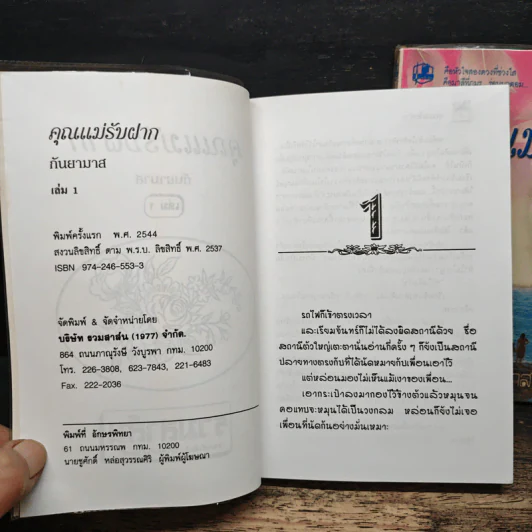 คุณแม่รับฝาก
กันยามาส
เล่ม 1
พิมพ์ครั้งแรก พ.ศ. 2544
สงวนลิขสิทธิ์ ตาม พ.ร.บ. ลิขสิทธิ์ พ.ศ. 2537
ISBN 974-246-553-3
จัดพิมพ์ & จัดจำหน่ายโดย
บริษัท รวมสาส์น (1977) จำกัด.
864 ถนนภาณุรังษี วังบูรพา กทม. 10200
โทร. 226-3808, 623-7843, 221-6483
Fax. 222-2036
พิมพ์ที่ อักษรพิทยา
61 ถนนมหรรณพ กทม. 10200
นายชูศักดิ์ หล่อสุวรรณศิริ ผู้พิมพ์ผู้โฆษณา
1
รถไฟก็เข้าตรงเวลา
และเรียมจันทร์ก็ไม่ได้ลงผิดสถานีด้วย ชื่อ
สถานีตัวใหญ่เตะตานั่นอ่านกี่ครั้ง ๆ ก็ยังเป็นสถานี
ปลายทางตรงกับที่ได้นัดหมายกับเพื่อนเอาไว้
แต่หล่อนมองไม่เห็นแม้เงาของเพื่อน...
เอากระเป๋าลงมากองไว้ข้างตัวแล้วหมุนจน
คอแทบจะหมุนได้เป็นวงกลม หล่อนก็ยังไม่เจอ
เพื่อนที่นัดกันอย่างมั่นเหมาะ
คือหัวใจสองดวงที่ช่วงใด